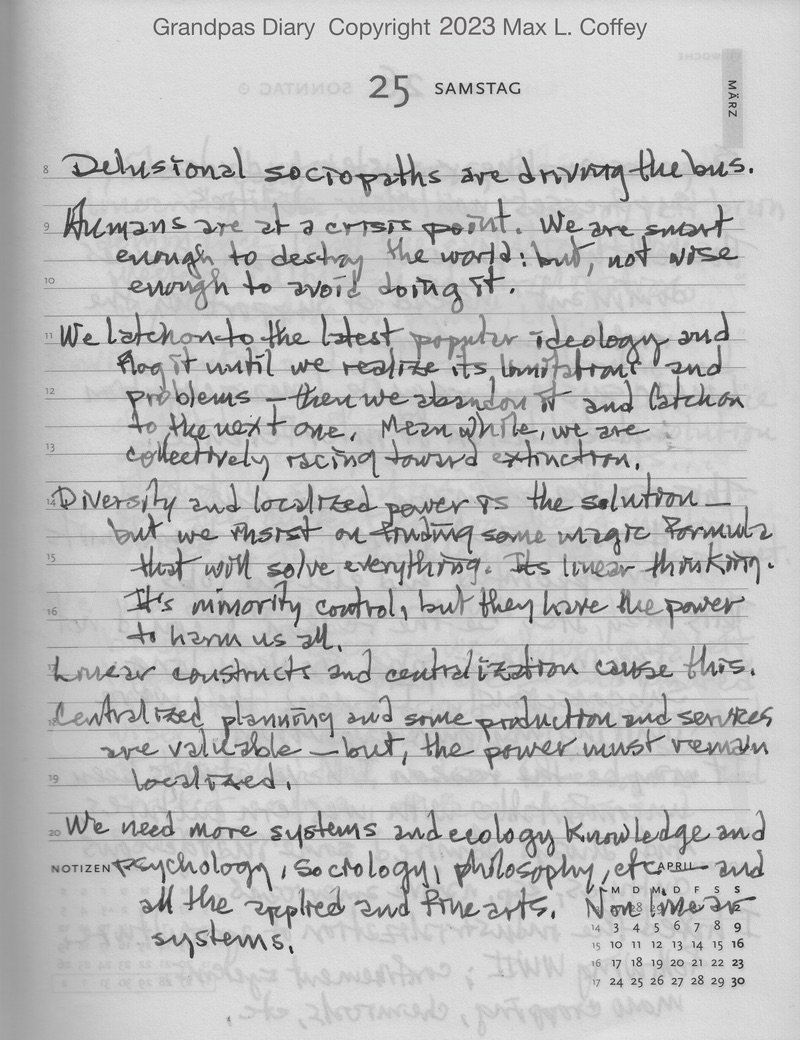 Grandpas Diary Copyright 2023 Max L. Coffey
25 SAMSTAG
MÄRZ
8 Delusional sociopaths are driving the bus.
9 Humans are at a crisis point. We are smart
enough to destroy the world: but, not wise
10 enough to avoid doing it.
11 We latch on to the latest popular ideology and
flog it until we realize its limitations and
12 problems – then we abandon it and latch on
to the next one. Meanwhile, we are
13 collectively racing toward extinction.
14 Diversity and localized power is the solution –
but we insist on finding some magic formula
15 that will solve everything. Its linear thinking.
16 It's minority control, but they have the power
to harm us all.
17 Linear constructs and centralization cause this.
18 Centralized planning and some production and services
are valuable – but, the power must remain
19 localized.
20 We need more systems and ecology knowledge and
NOTIZEN psychology, sociology, philosophy, etc – and
APRIL
all the applied and fine arts. Non linear
systems.
M D M D F S S
28 2
14 3 4 5 6 7 8 9
15 10 11 12 13 14 15 16
16 17 18 19 20 21 22 23
17 24 25 26 27 28 29 30